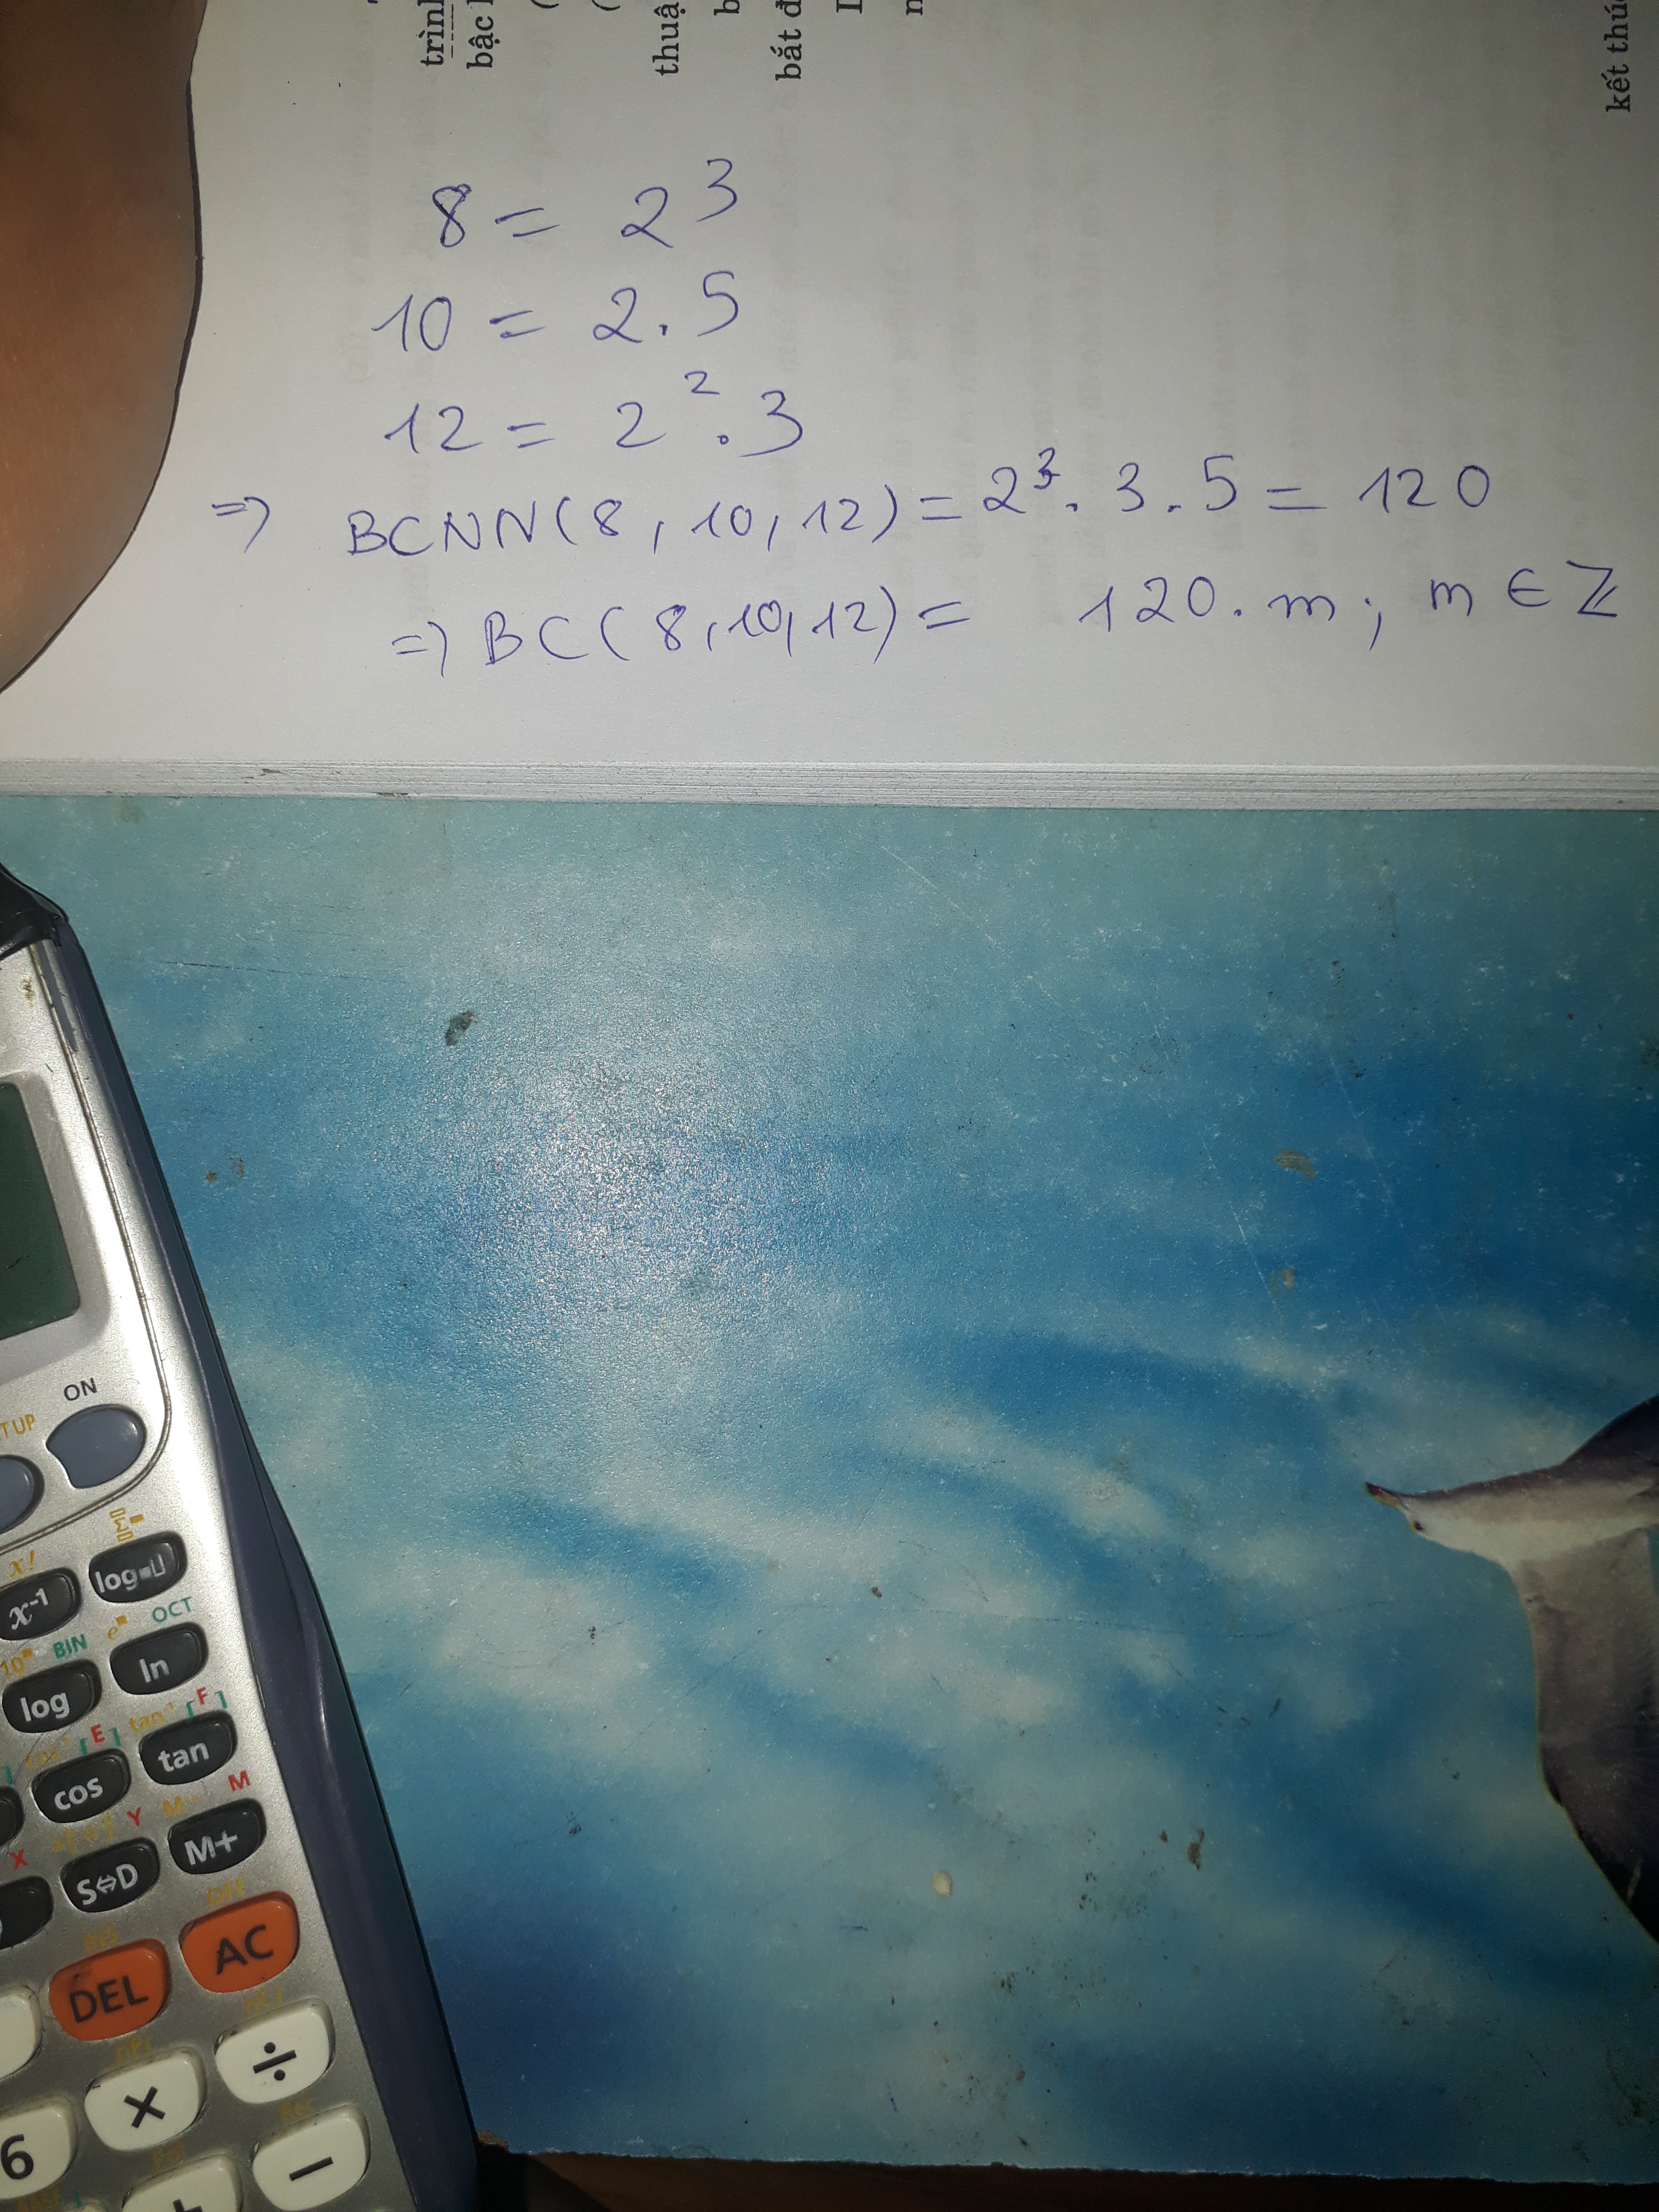 trình
bậc
thuậ
b
bắt đ
kết thú
8 = 2³
10 = 2.5
12 = 2².3
=> BCNN(8, 10, 12) = 2³. 3. 5 = 120
=> BC(8,10,12) = 120. m; m ∈ Z
ON
TUP
x!
x⁻¹
log
10 BIN
e OCT
log
ln
E
tan⁻¹ F
cos
tan
X
Y
M- M
S⇔D
M+
OFF
DEL
AC
×
÷
6
+
−